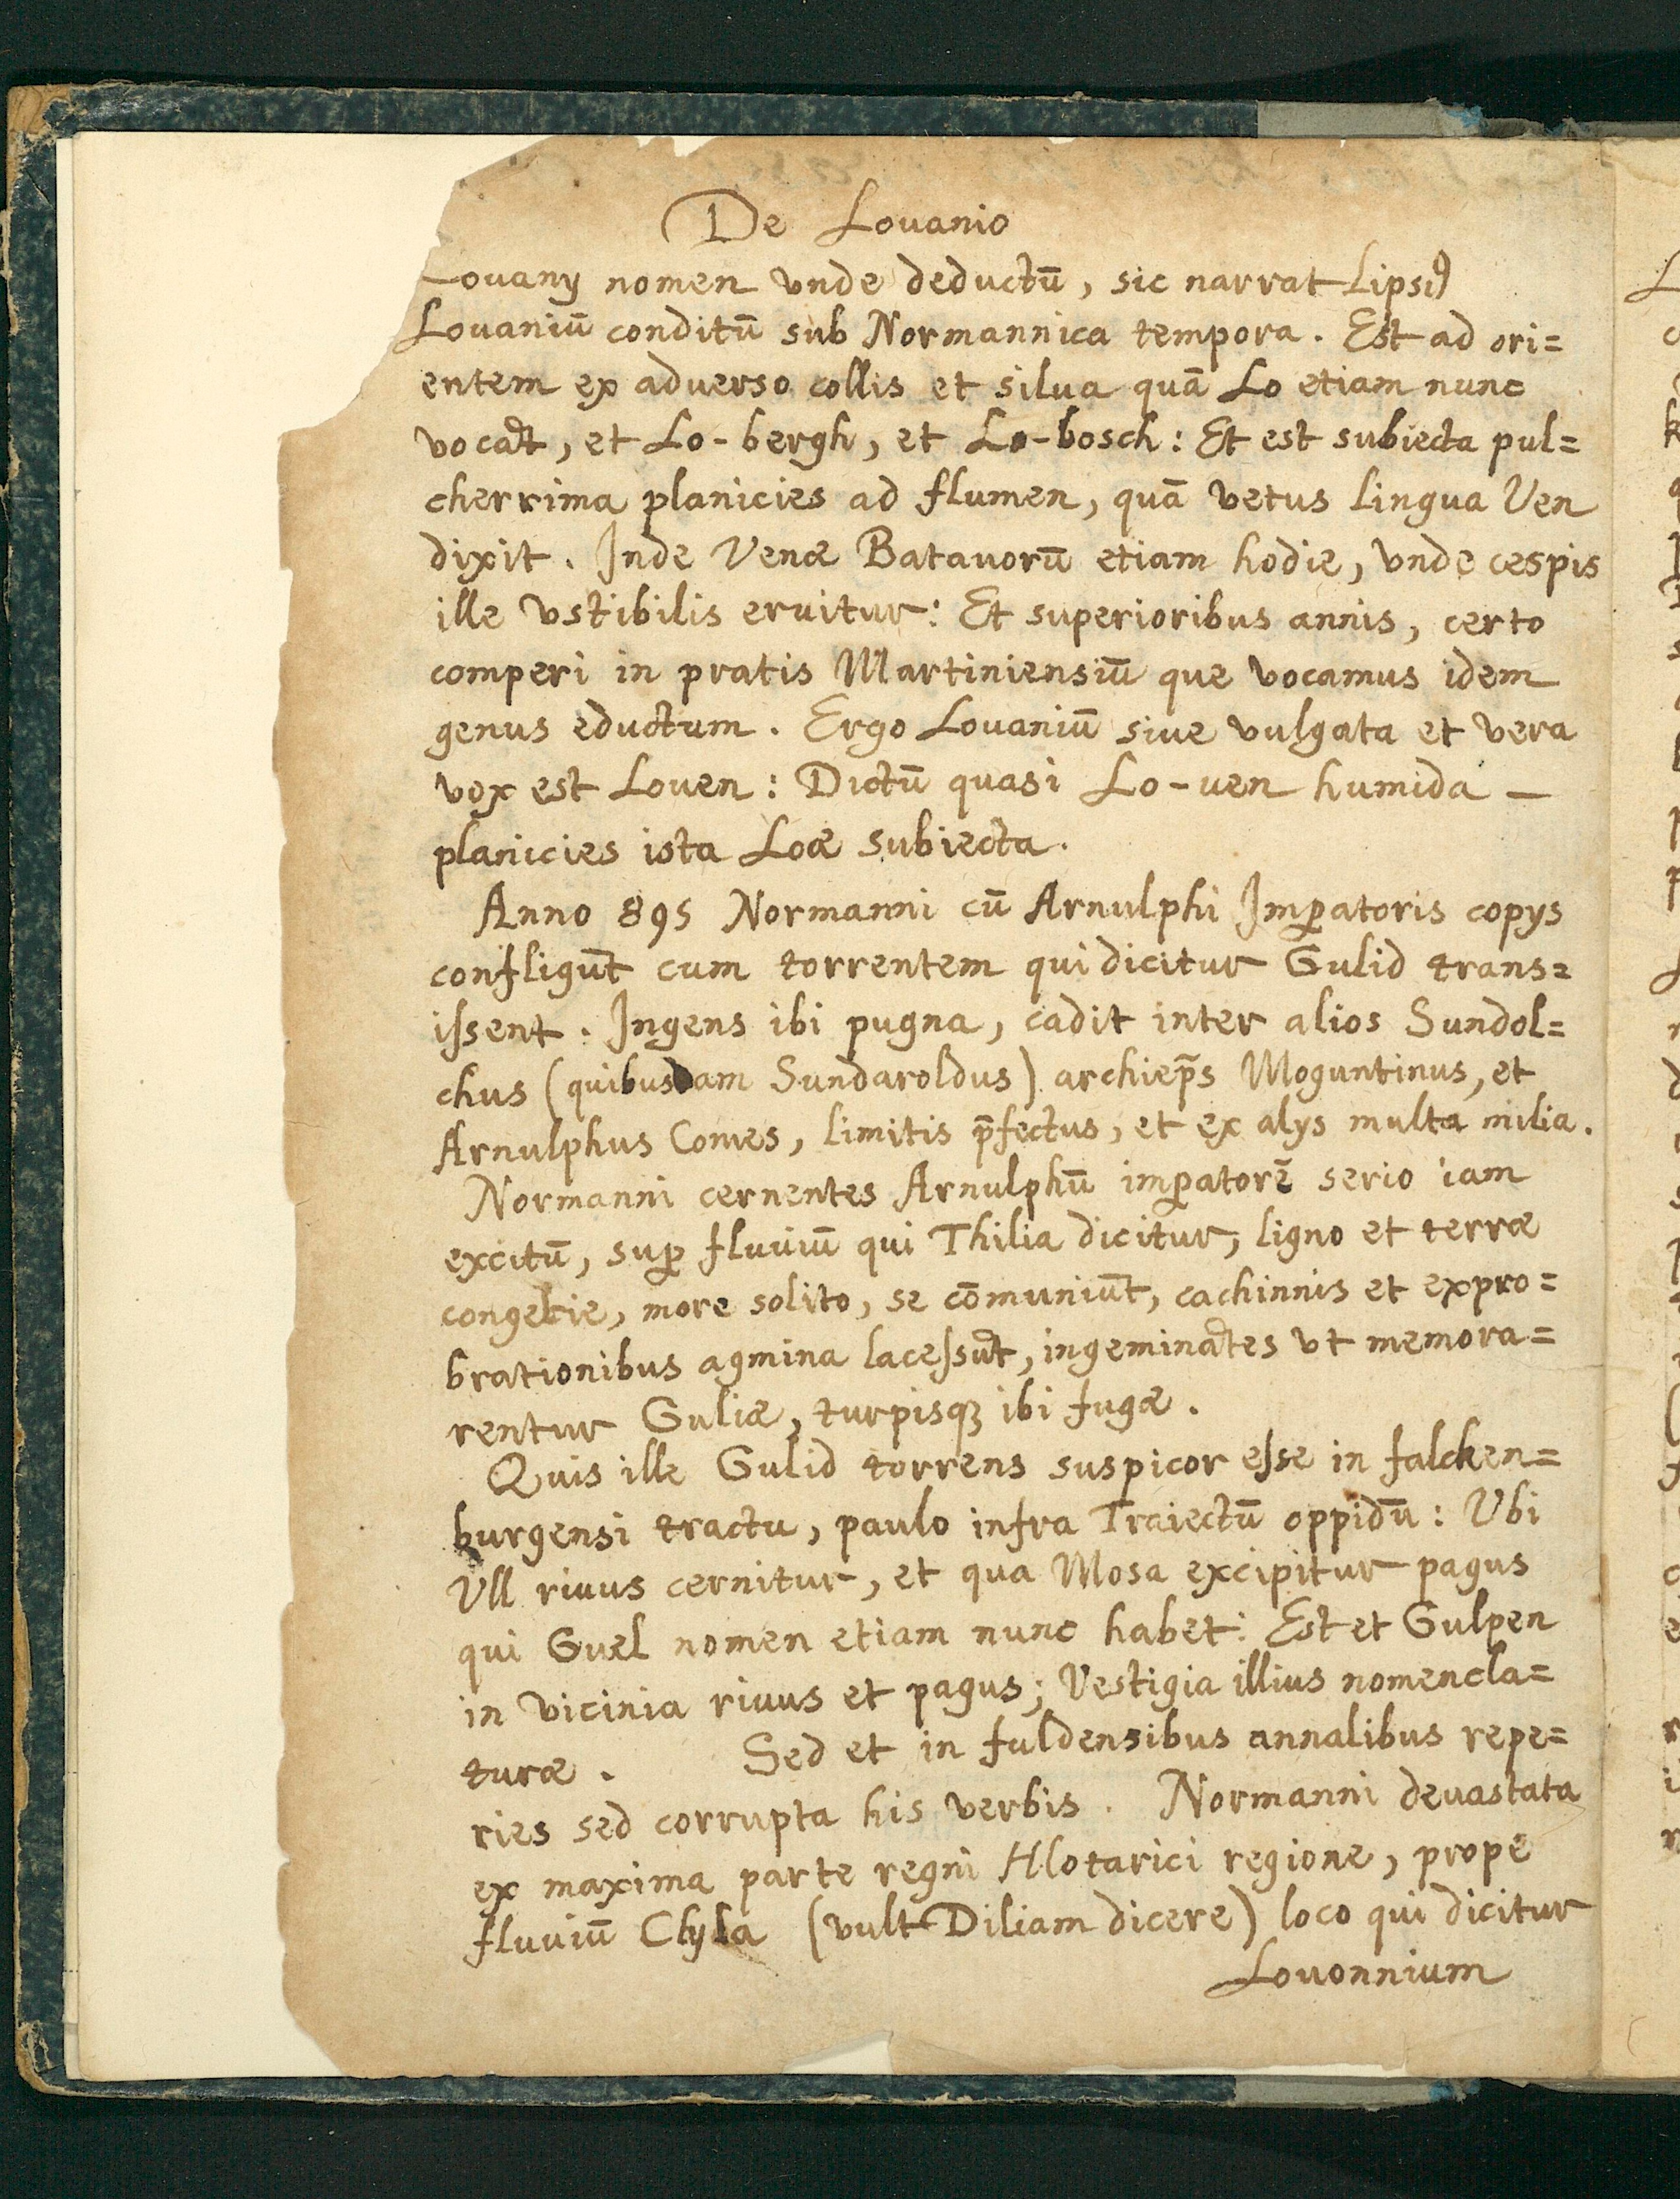 De Louanio
Louanij nomen vnde deductū, sic narrat Lipsiꝰ
Louaniū conditū sub Normannica tempora. Est ad ori=
entem ex aduerso collis et silua quā Lo etiam nunc
vocāt, et Lo-bergh, et Lo-bosch: Et est subiecta pul=
cherrima planicies ad flumen, quā vetus lingua Ven
dixit. Inde Venæ Batauorū etiam hodie, vnde cespis
ille vstibilis eruitur: Et superioribus annis, certo
comperi in pratis Martiniensiū que vocamus idem
genus eductum. Ergo Louaniū siue vulgata et vera
vox est Louen: Dictū quasi Lo-uen humida —
planicies ista Loæ subiecta.
Anno 895 Normanni cū Arnulphi Imꝑatoris copijs
confligūt cum torrentem qui dicitur Gulid trans=
iſsent. Ingens ibi pugna, cadit inter alios Sundol=
chus (quibusdam Sundaroldus) archiep̄s Moguntinus, et
Arnulphus Comes, limitis p̄fectus, et ex alijs multa milia.
Normanni cernentes Arnulphū imꝑatorē serio iam
excitū, suꝑ fluuiū qui Thilia dicitur, ligno et terræ
congerie, more solito, se cōmuniūt, cachinnis et expro=
brationibus agmina laceſsūt, ingeminātes vt memora=
rentur Guliæ, turpisqꝫ ibi fugæ.
Quis ille Gulid torrens suspicor eſse in falcken=
burgensi tractu, paulo infra Traiectū oppidū: Vbi
Vll riuus cernitur, et qua Mosa excipitur pagus
qui Guel nomen etiam nunc habet: Est et Gulpen
in vicinia riuus et pagus; Vestigia illius nomencla=
turæ. Sed et in fuldensibus annalibus repe=
ries sed corrupta his verbis. Normanni deuastata
ex maxima parte regni Hlotarici regione, prope
fluuiū Clyla (vult Diliam dicere) loco qui dicitur
Louonnium